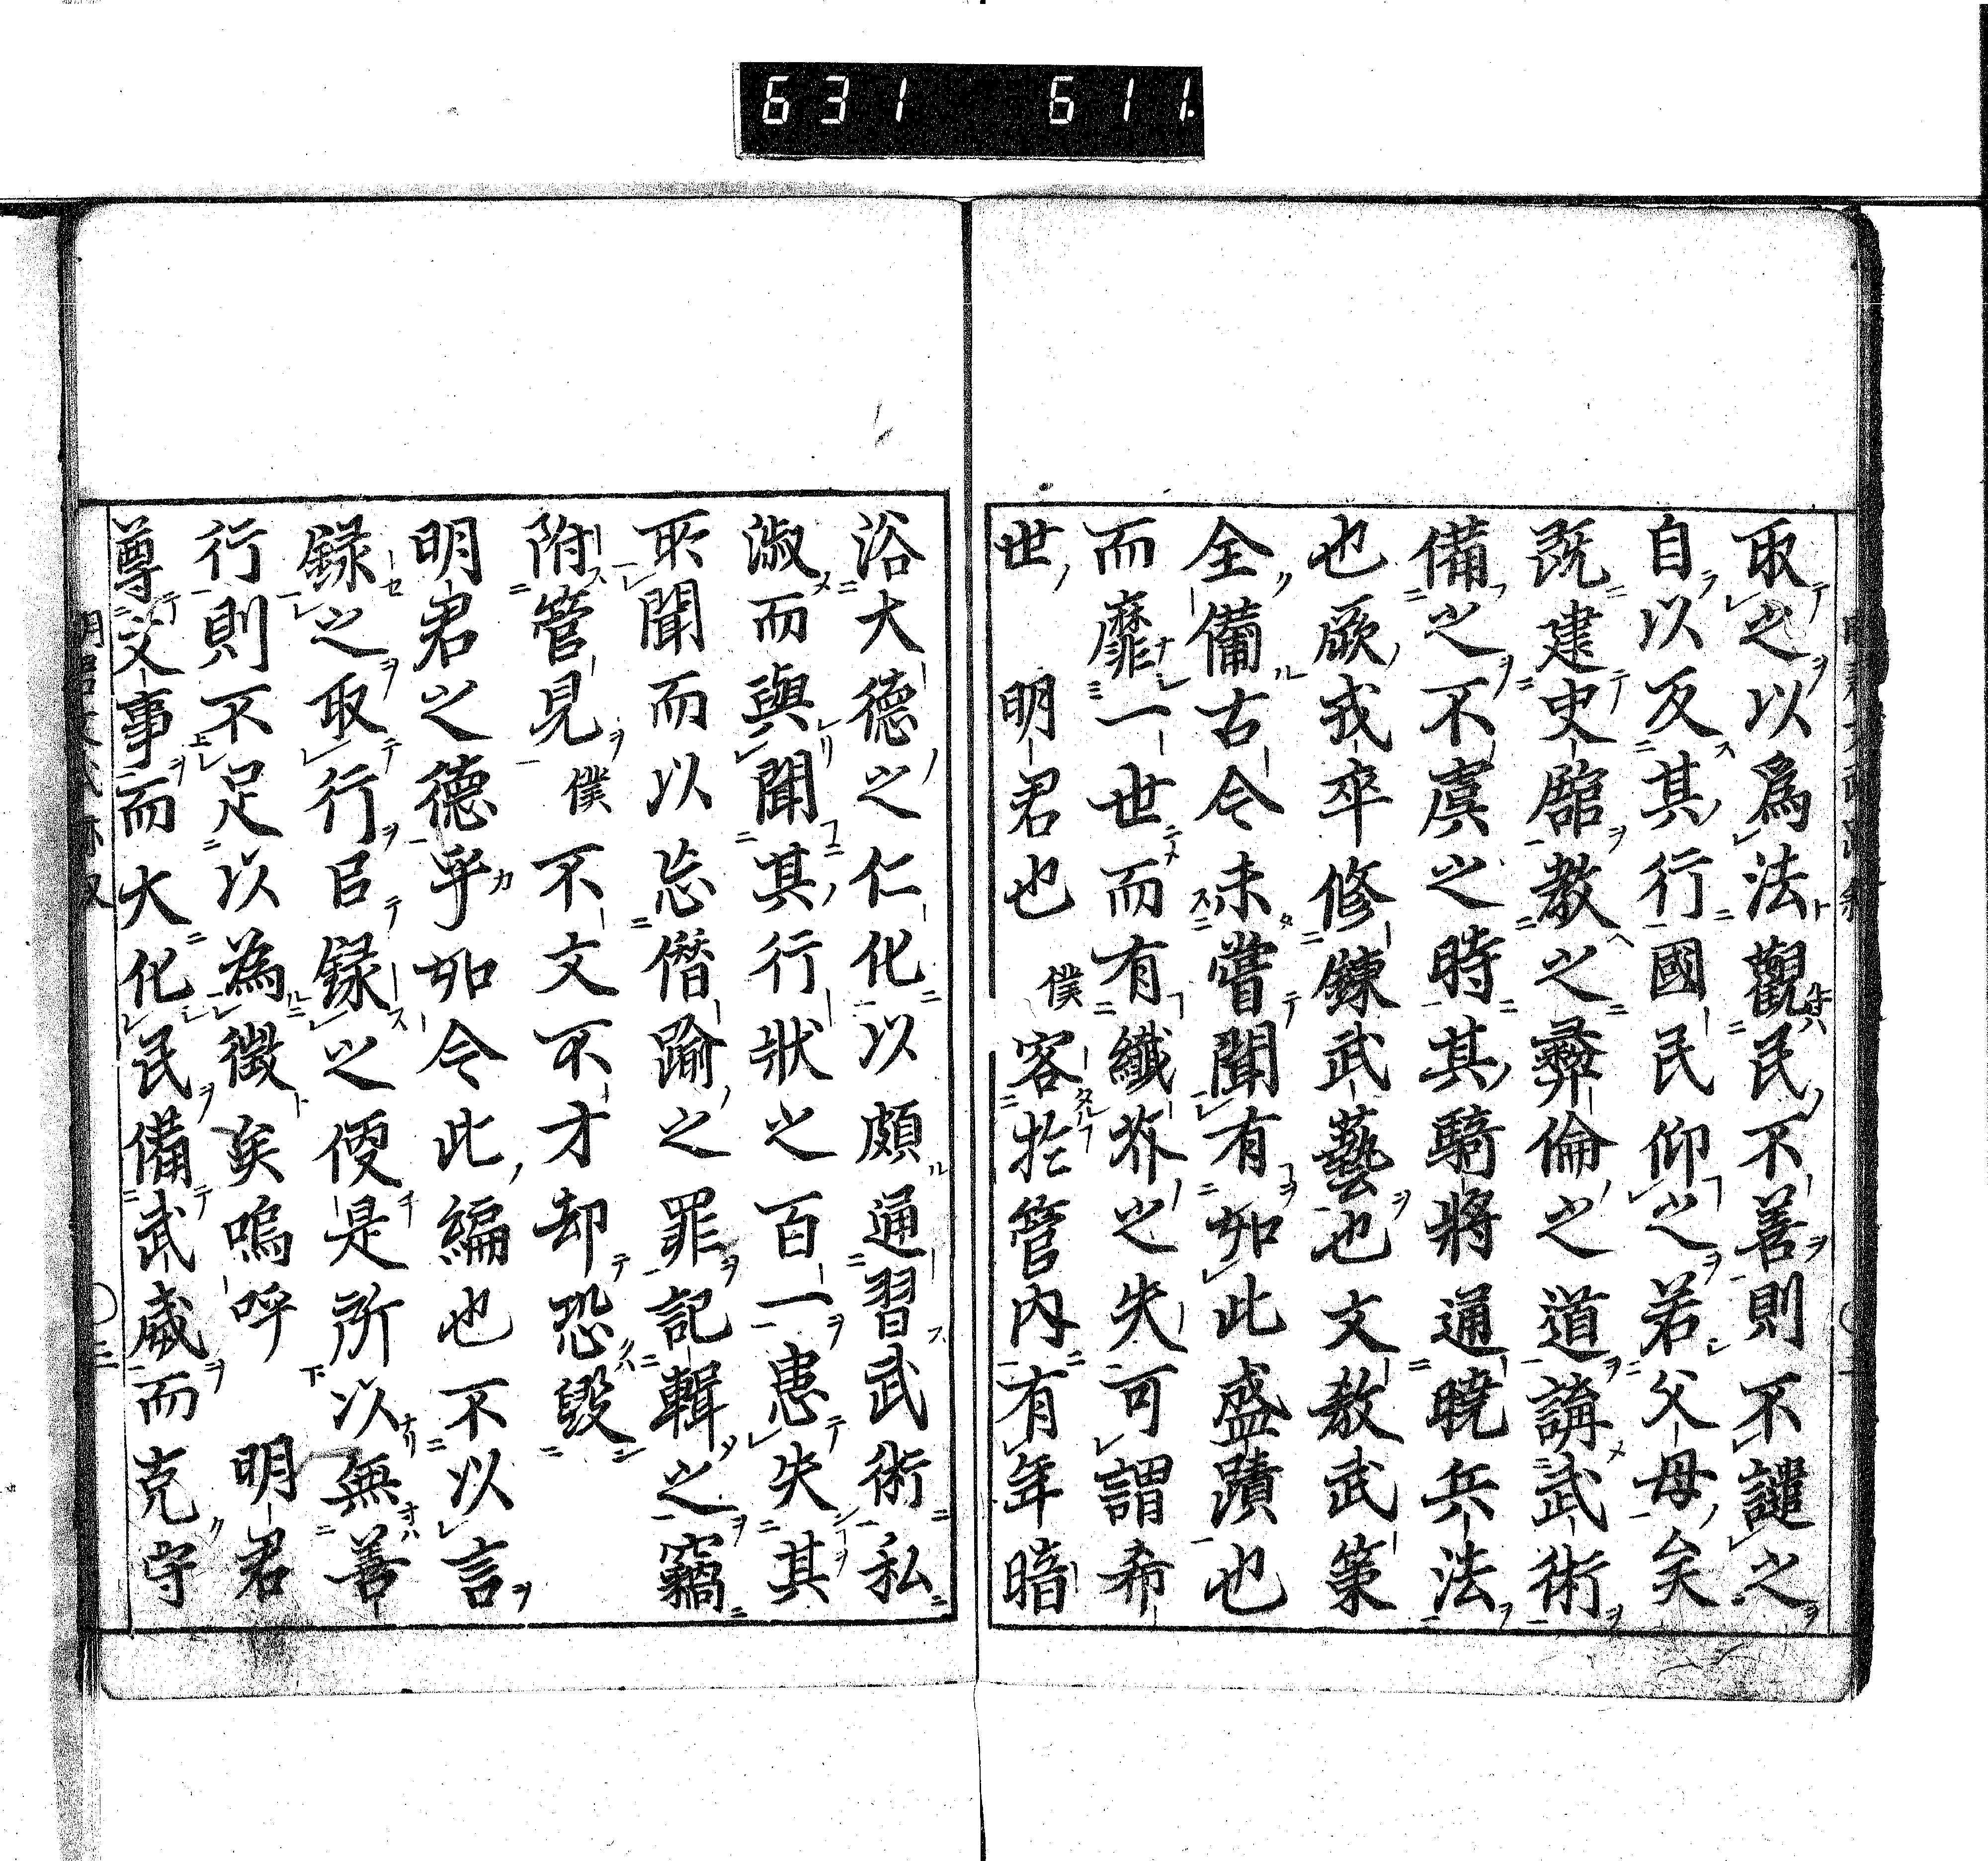 631 611
取之以爲法觀民不善則不譴之
自以反其行國民仰之若父母矣
既建史館教之彝倫之道講武術
備之不虞之時其騎將通曉兵法
也厥戎卒修鍊武藝也文教武策
全備古今未嘗聞有如此盛蹟也
而靡一世而有纖芥之失可謂希
世 明君也 僕客於管內有年暗
浴大德之仁化以頗通習武術私
淑而與聞其行狀之百一患失其
所聞而以忘僭踰之罪記輯之竊
附管見 僕不文不才却恐毀
明君之德乎如今此編也不以言
錄之取行㠯錄之便是所以無善
行則不足以為徵矣嗚呼 明君
尊文事而大化民備武威而克守
三